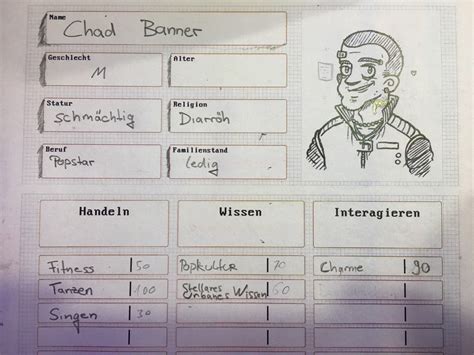 Name
Chad Banner
Geschlecht Alter
M
Statur Religion
schmächtig Diarröh
Beruf Familienstand
Popstar ledig
Handeln Wissen Interagieren
Fitness 50 Popkultur 70 Charme 90
Tanzen 100 Stellares Urbanes Wissen 50
Singen 30